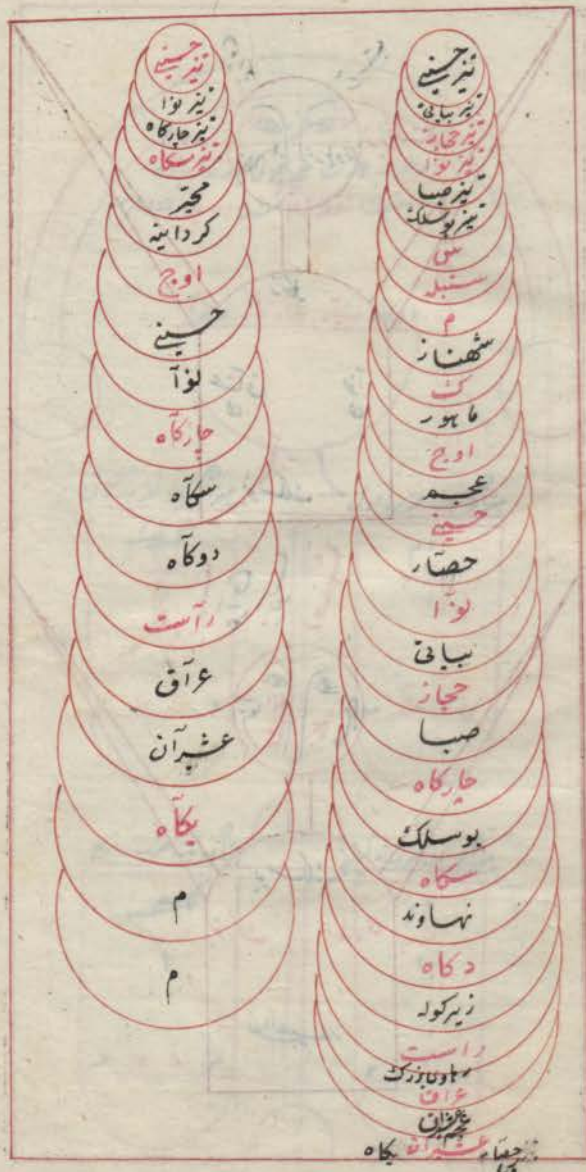 تيز حسيني
تيز بياتي
تيز حجاز
تيز نوا
تيز صبا
تيز بوسلك
س
سنبله
م
شهناز
ك
ماهور
اوج
عجم
حسيني
حصار
نوا
بياتي
حجاز
صبا
چاركاه
بوسلك
سكاه
نهاوند
دكاه
زيركوله
راست
رهاوى بزرك
عراق
عجم عشيران
عشيران
يكاه
تيز حسيني
تيز نوا
تيز چاركاه
تيز سكاه
محير
كردانيه
اوج
حسيني
نوآ
چاركآه
سكآه
دوكآه
رآست
عرآق
عشيرآن
يكآه
م
م